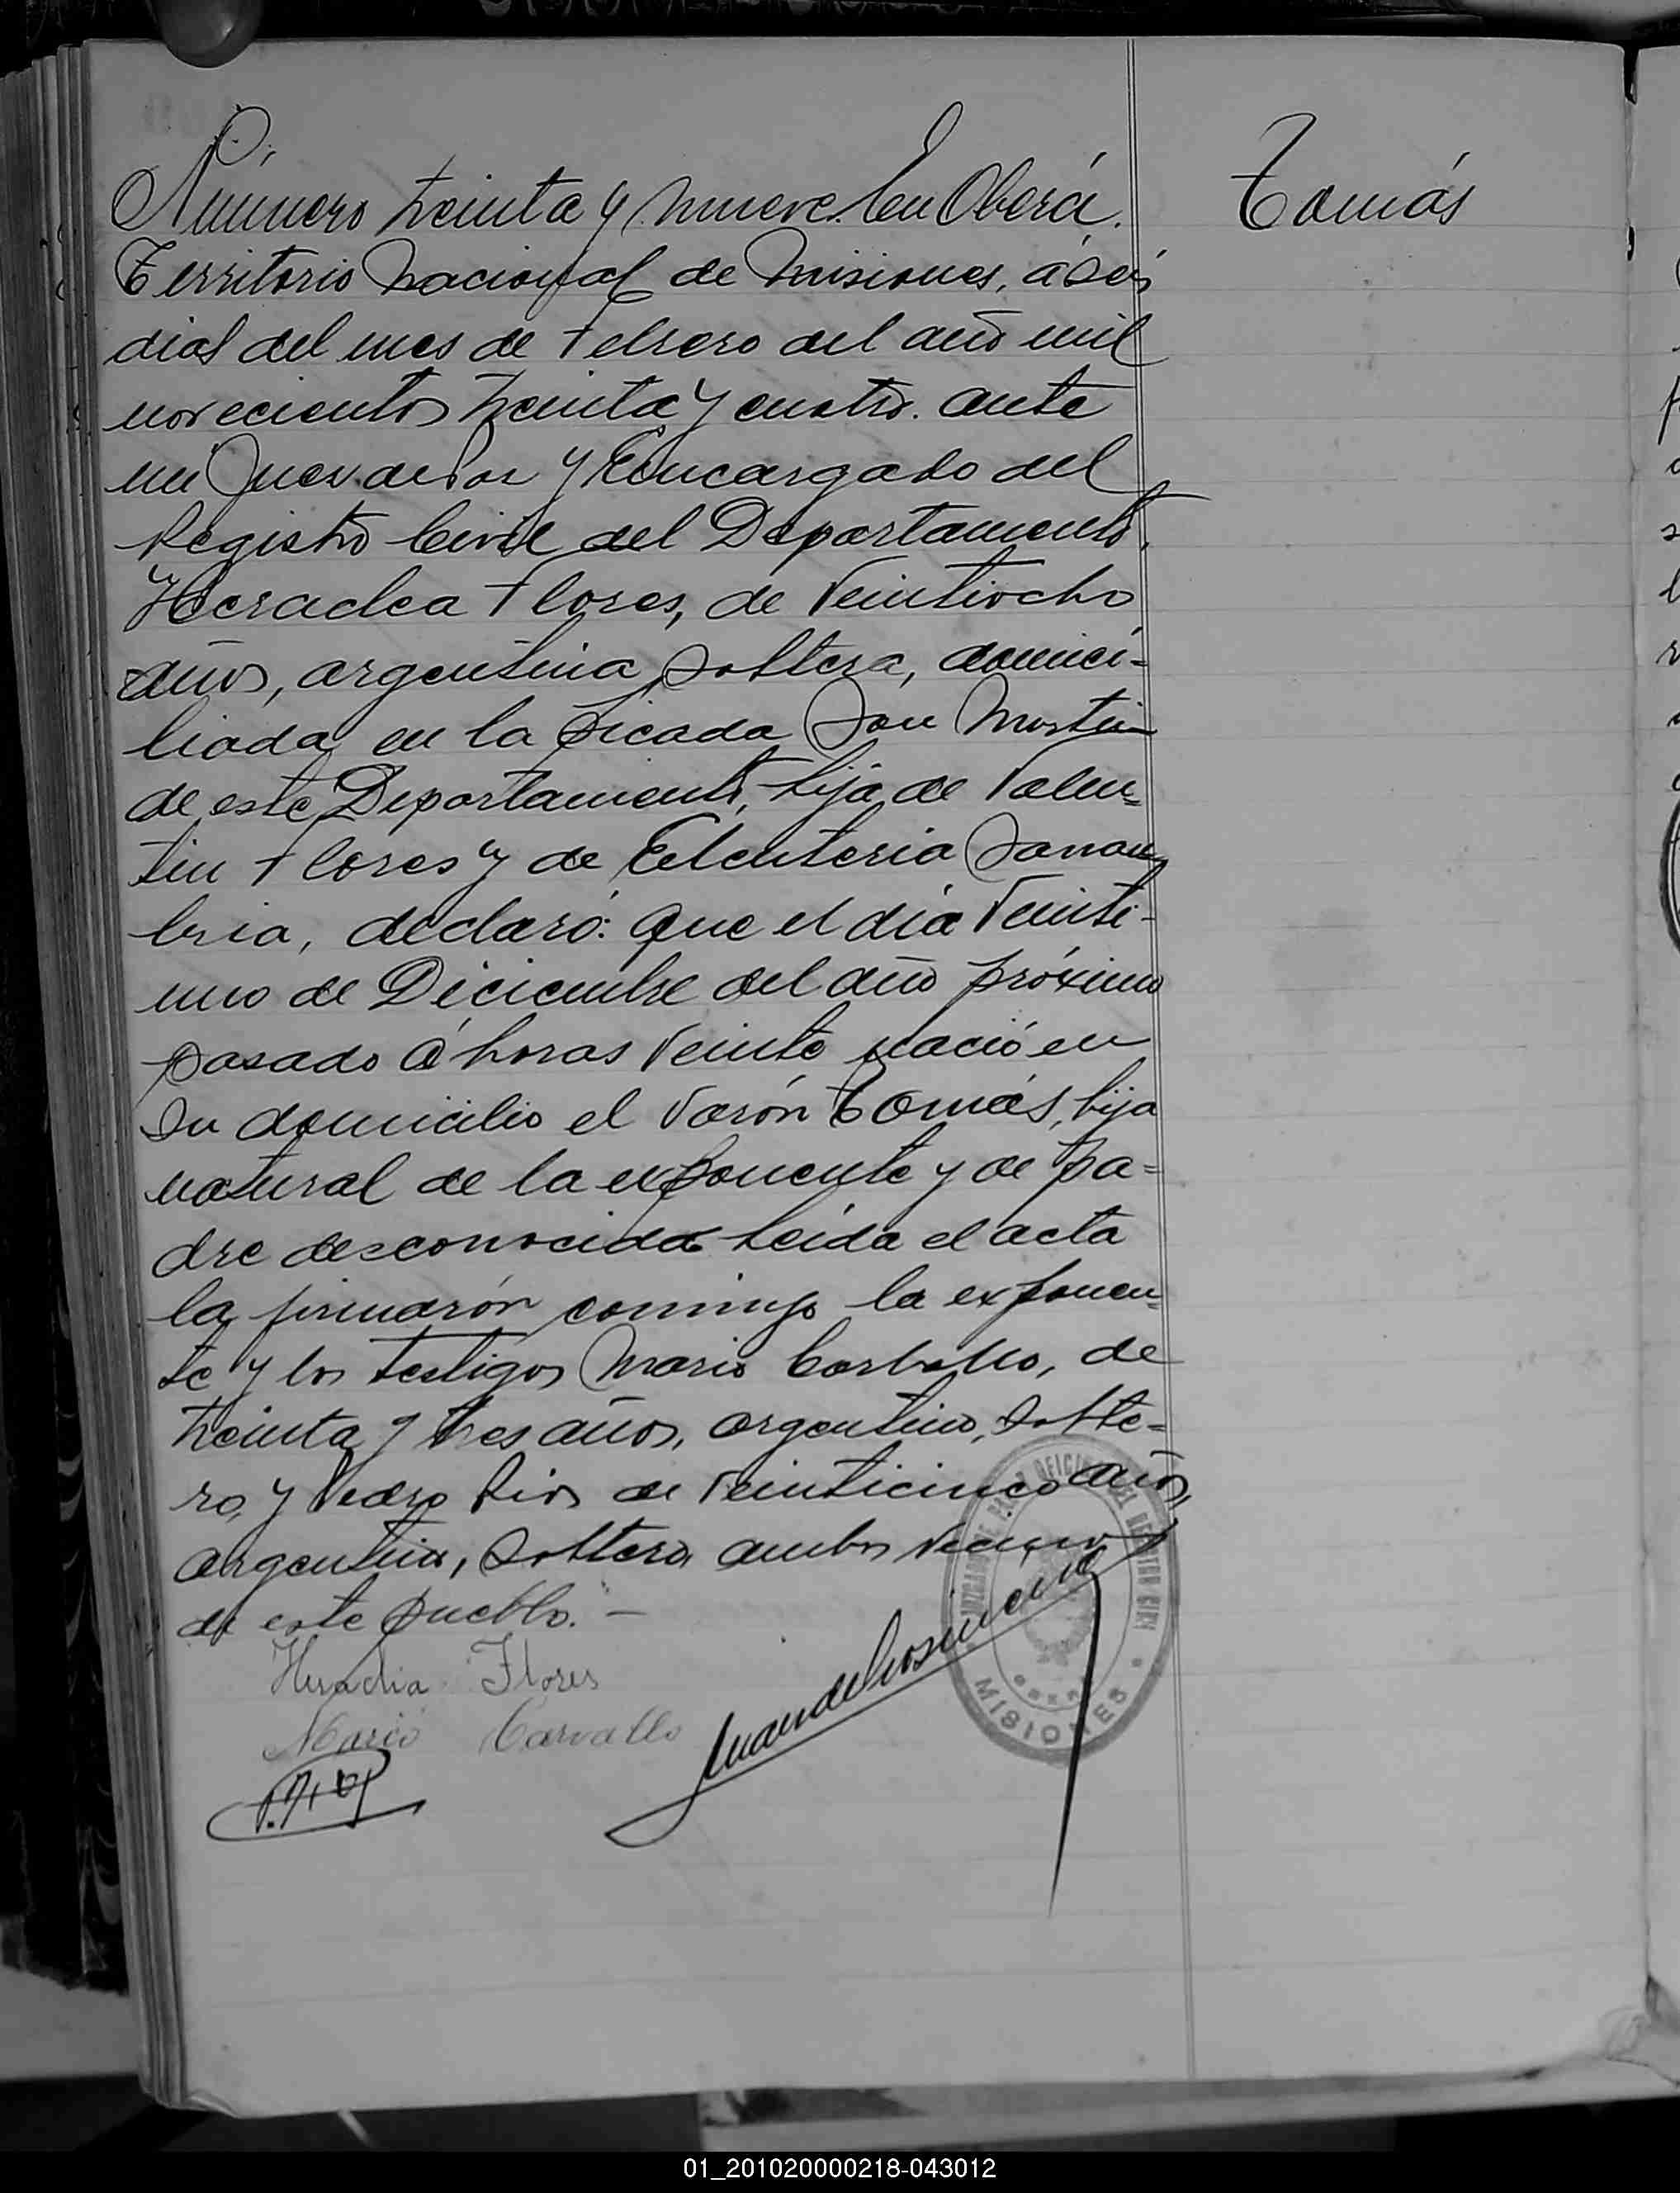 Número treinta y nueve. En Oberá,
Tomás
Territorio Nacional de Misiones, a seis
dias del mes de Febrero del año mil
novecientos treinta y cuatro. ante
mi Juez de Paz y Encargado del
Registro Civil del Departamento,
Heraclea Flores, de veintiocho
años, argentina, soltera, domici-
liada en la picada San Martin
de este Departamento, hija de Valen-
tin Flores y de Eleuteria Sanau
bria, declaró: que el día veinti-
uno de Diciembre del año próximo
pasado á horas veinte nació en
su domicilio el varón Tomás, hijo
natural de la exponente y de pa-
dre desconocido Leida el acta
la firmarón conmigo la exponen-
te y los testigos Mario Carballo, de
treinta y tres años, argentino, solte-
ro, y Pedro Rios de veinticinco años,
argentino, soltero, ambos vecinos
de este pueblo. —
Heraclia Flores
Mario Carvallo
P. Rios
JUZGADO DE PAZ OFICINA DEL REGISTRO CIVIL
MISIONES
01_201020000218-043012